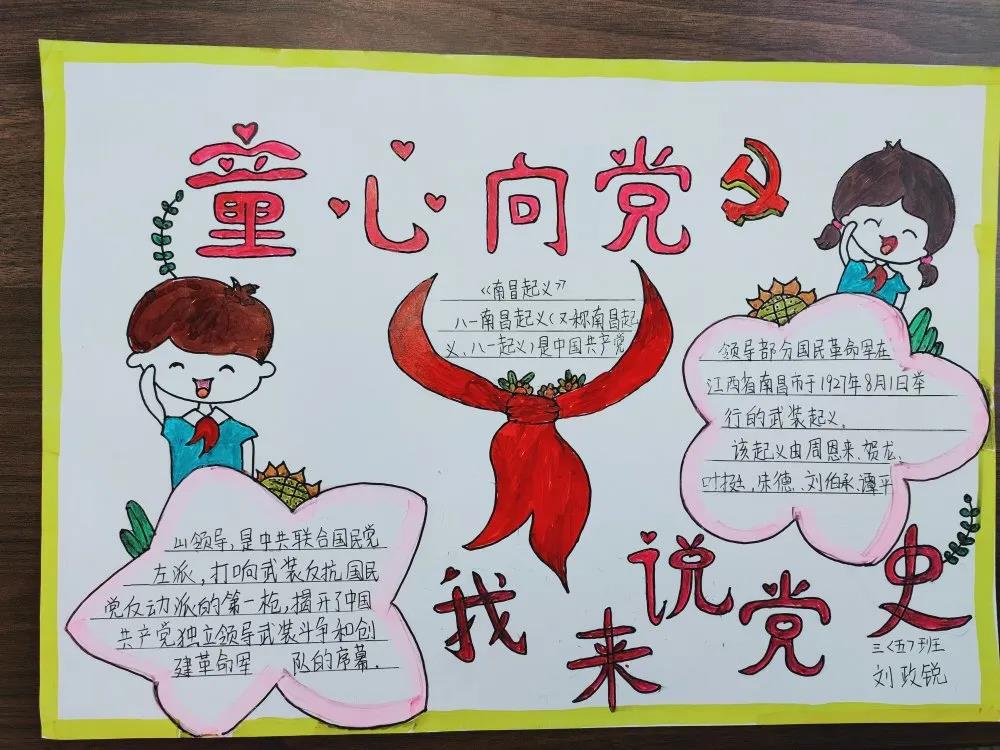 童心向党
《南昌起义》
八一南昌起义(又称南昌起
义、八一起义)是中国共产党
领导部分国民革命军在
江西省南昌市于1927年8月1日举
行的武装起义。
该起义由周恩来、贺龙、
叶挺、朱德、刘伯承、谭平
山领导,是中共联合国民党
左派,打响武装反抗国民
党反动派的第一枪,揭开了中国
共产党独立领导武装斗争和创
建革命军 队的序幕.
我来说党史
三〈五〉班
刘政锐